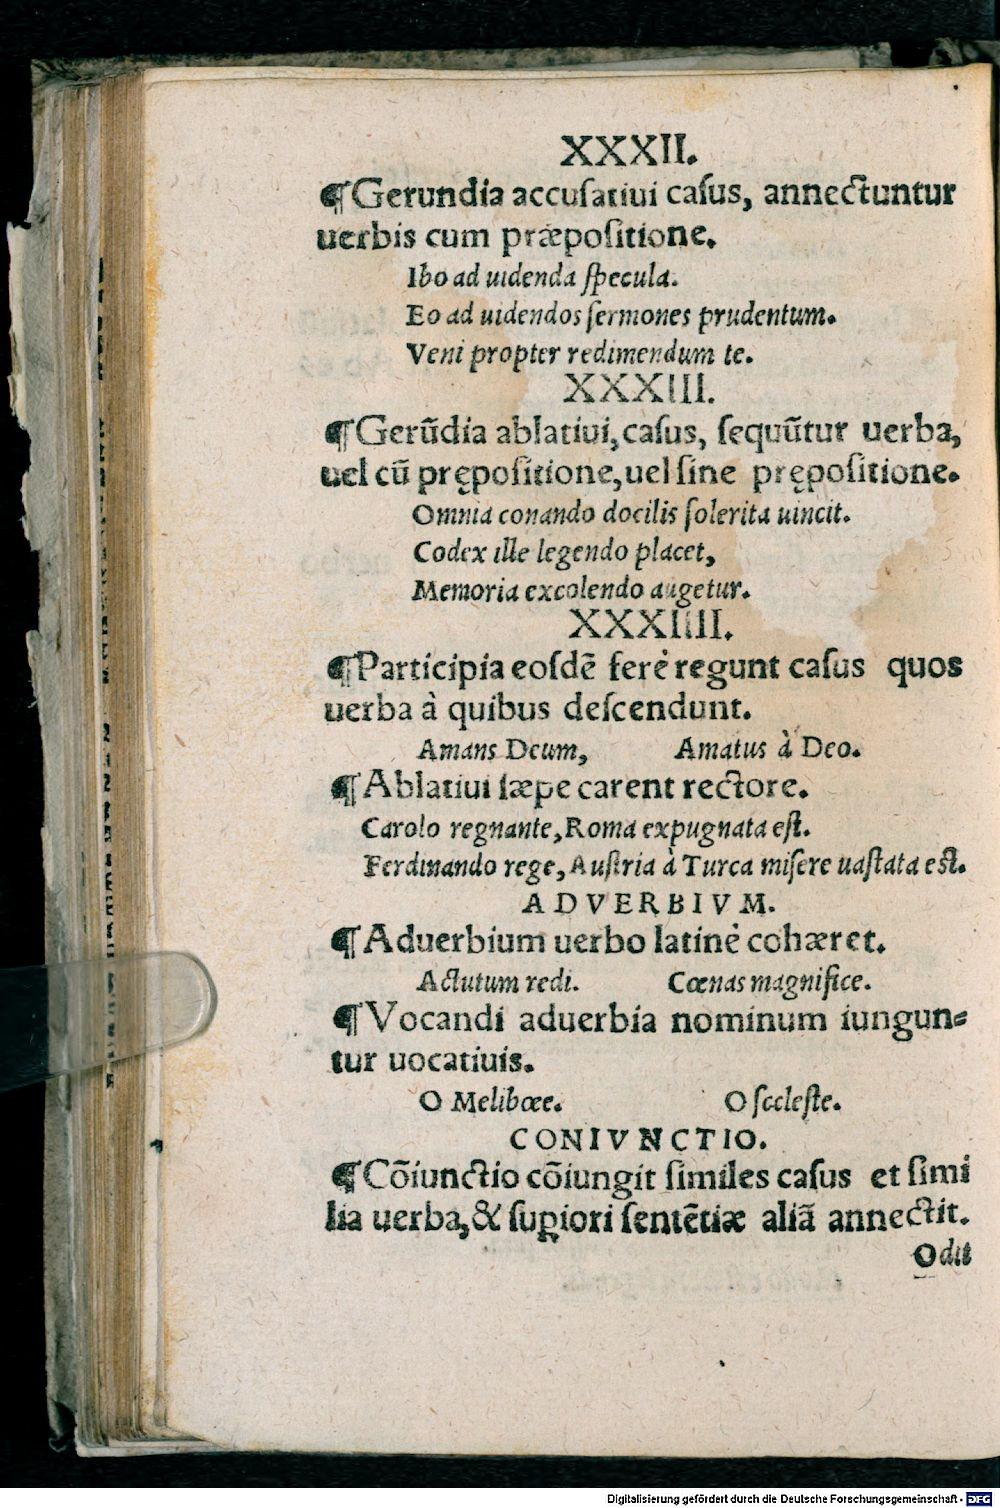 XXXII.
¶Gerundia accuſatiui caſus, annectuntur
uerbis cum præpoſitione.
Ibo ad uidenda ſpecula.
Eo ad uidendos ſermones prudentum.
Veni propter redimendum te.
XXXIII.
¶Gerũdia ablatiui, caſus, ſequũtur uerba,
uel cũ prępoſitione, uel ſine prępoſitione.
Omnia conando docilis ſolerita uincit.
Codex ille legendo placet,
Memoria excolendo augetur.
XXXIIII.
¶Participia eoſdẽ ferè regunt caſus quos
uerba à quibus deſcendunt.
Amans Deum, Amatus à Deo.
¶Ablatiui ſæpe carent rectore.
Carolo regnante, Roma expugnata eſt.
Ferdinando rege, Auſtria à Turca miſere uaſtata eſt.
ADVERBIVM.
¶Aduerbium uerbo latinè cohæret.
Actutum redi. Cœnas magnifice.
¶Vocandi aduerbia nominum iungun⸗
tur uocatiuis.
O Melibœe. O ſceleſte.
CONIVNCTIO.
¶Cõiunctio cõiungit ſimiles caſus et ſimi
lia uerba, & ſuꝑiori ſentẽtiæ aliã annectit.
Odit
Digitalisierung gefördert durch die Deutsche Forschungsgemeinschaft - DFG